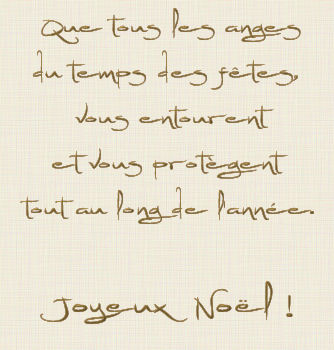 Que tous les anges
du temps des fêtes,
vous entourent
et vous protègent
tout au long de l'année.
Joyeux Noël !